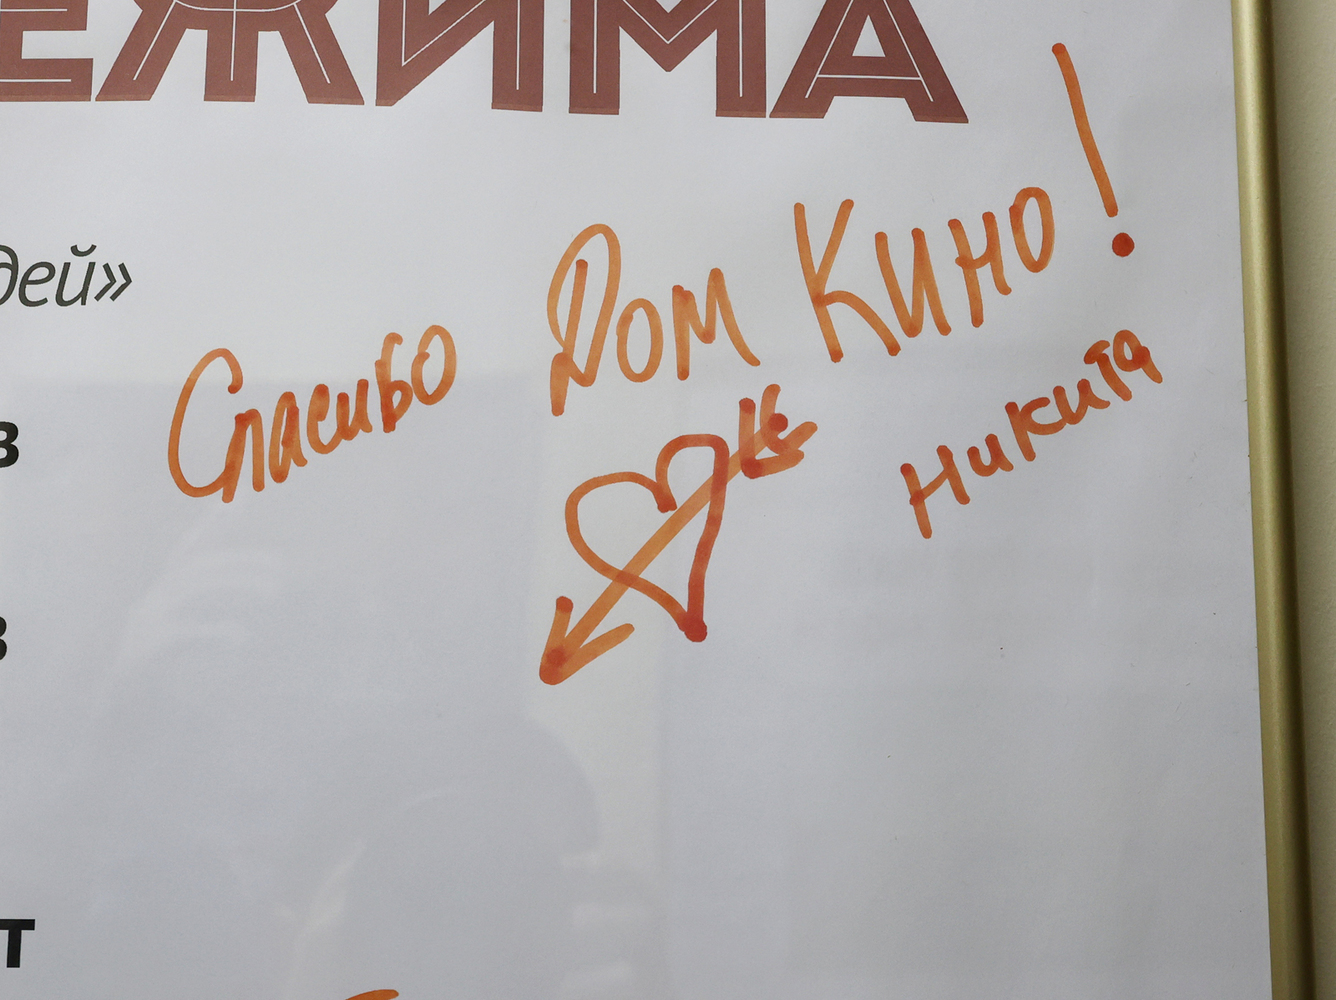 ЕЖИМА
дей»
Спасибо Дом Кино!
Никита
в
в
т